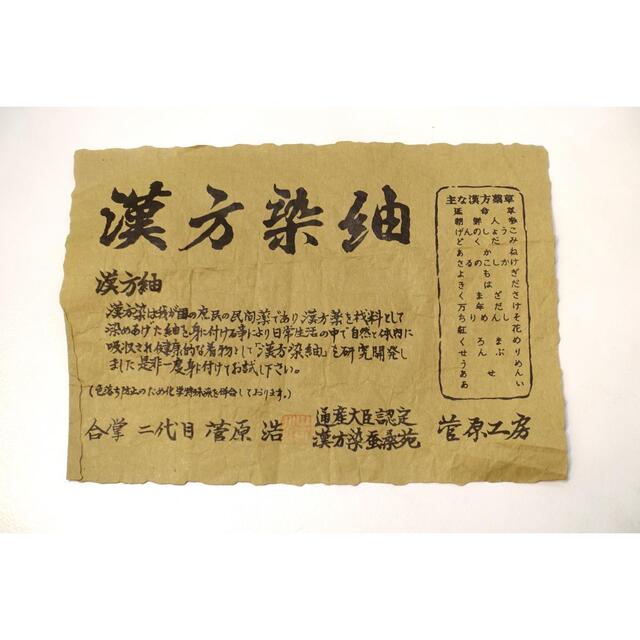 漢方染紬
漢方紬
漢方染は我が国の庶民の民間薬であり漢方薬を材料として
染めあげた紬を身に付ける事により日常生活の中で自然と体内に
吸収され健康的な着物として「漢方染紬」を研究開発し
ました是非一度身に付けてお試し下さい。
(色落ち防止のため化学特殊液を併合しております。)
合掌 二代目 菅原 浩
通産大臣認定
漢方染蚕桑苑
菅原工房
主な漢方薬草
延命草
朝鮮人参
げんのしょうこ
どくだみ
あかね
さるのこしかけ
よもぎ
きはだ
くまざさ
万年だけ
ちりめんじそ
紅花
くろまめ
せんぶり